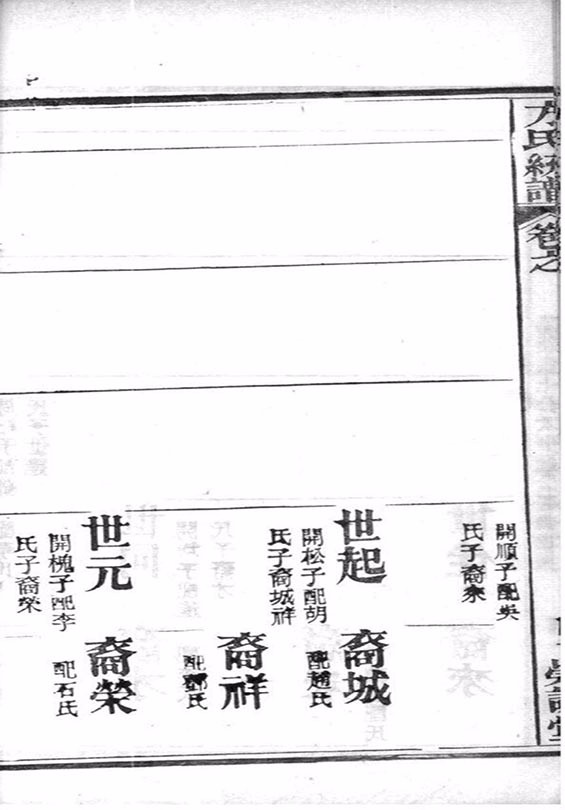 方氏統譜
卷之
開順子配吳
氏子裔來
世起
開松子配胡
氏子裔城祥
裔城
配趙氏
裔祥
配鄧氏
世元
開槐子配李
氏子裔榮
裔榮
配石氏